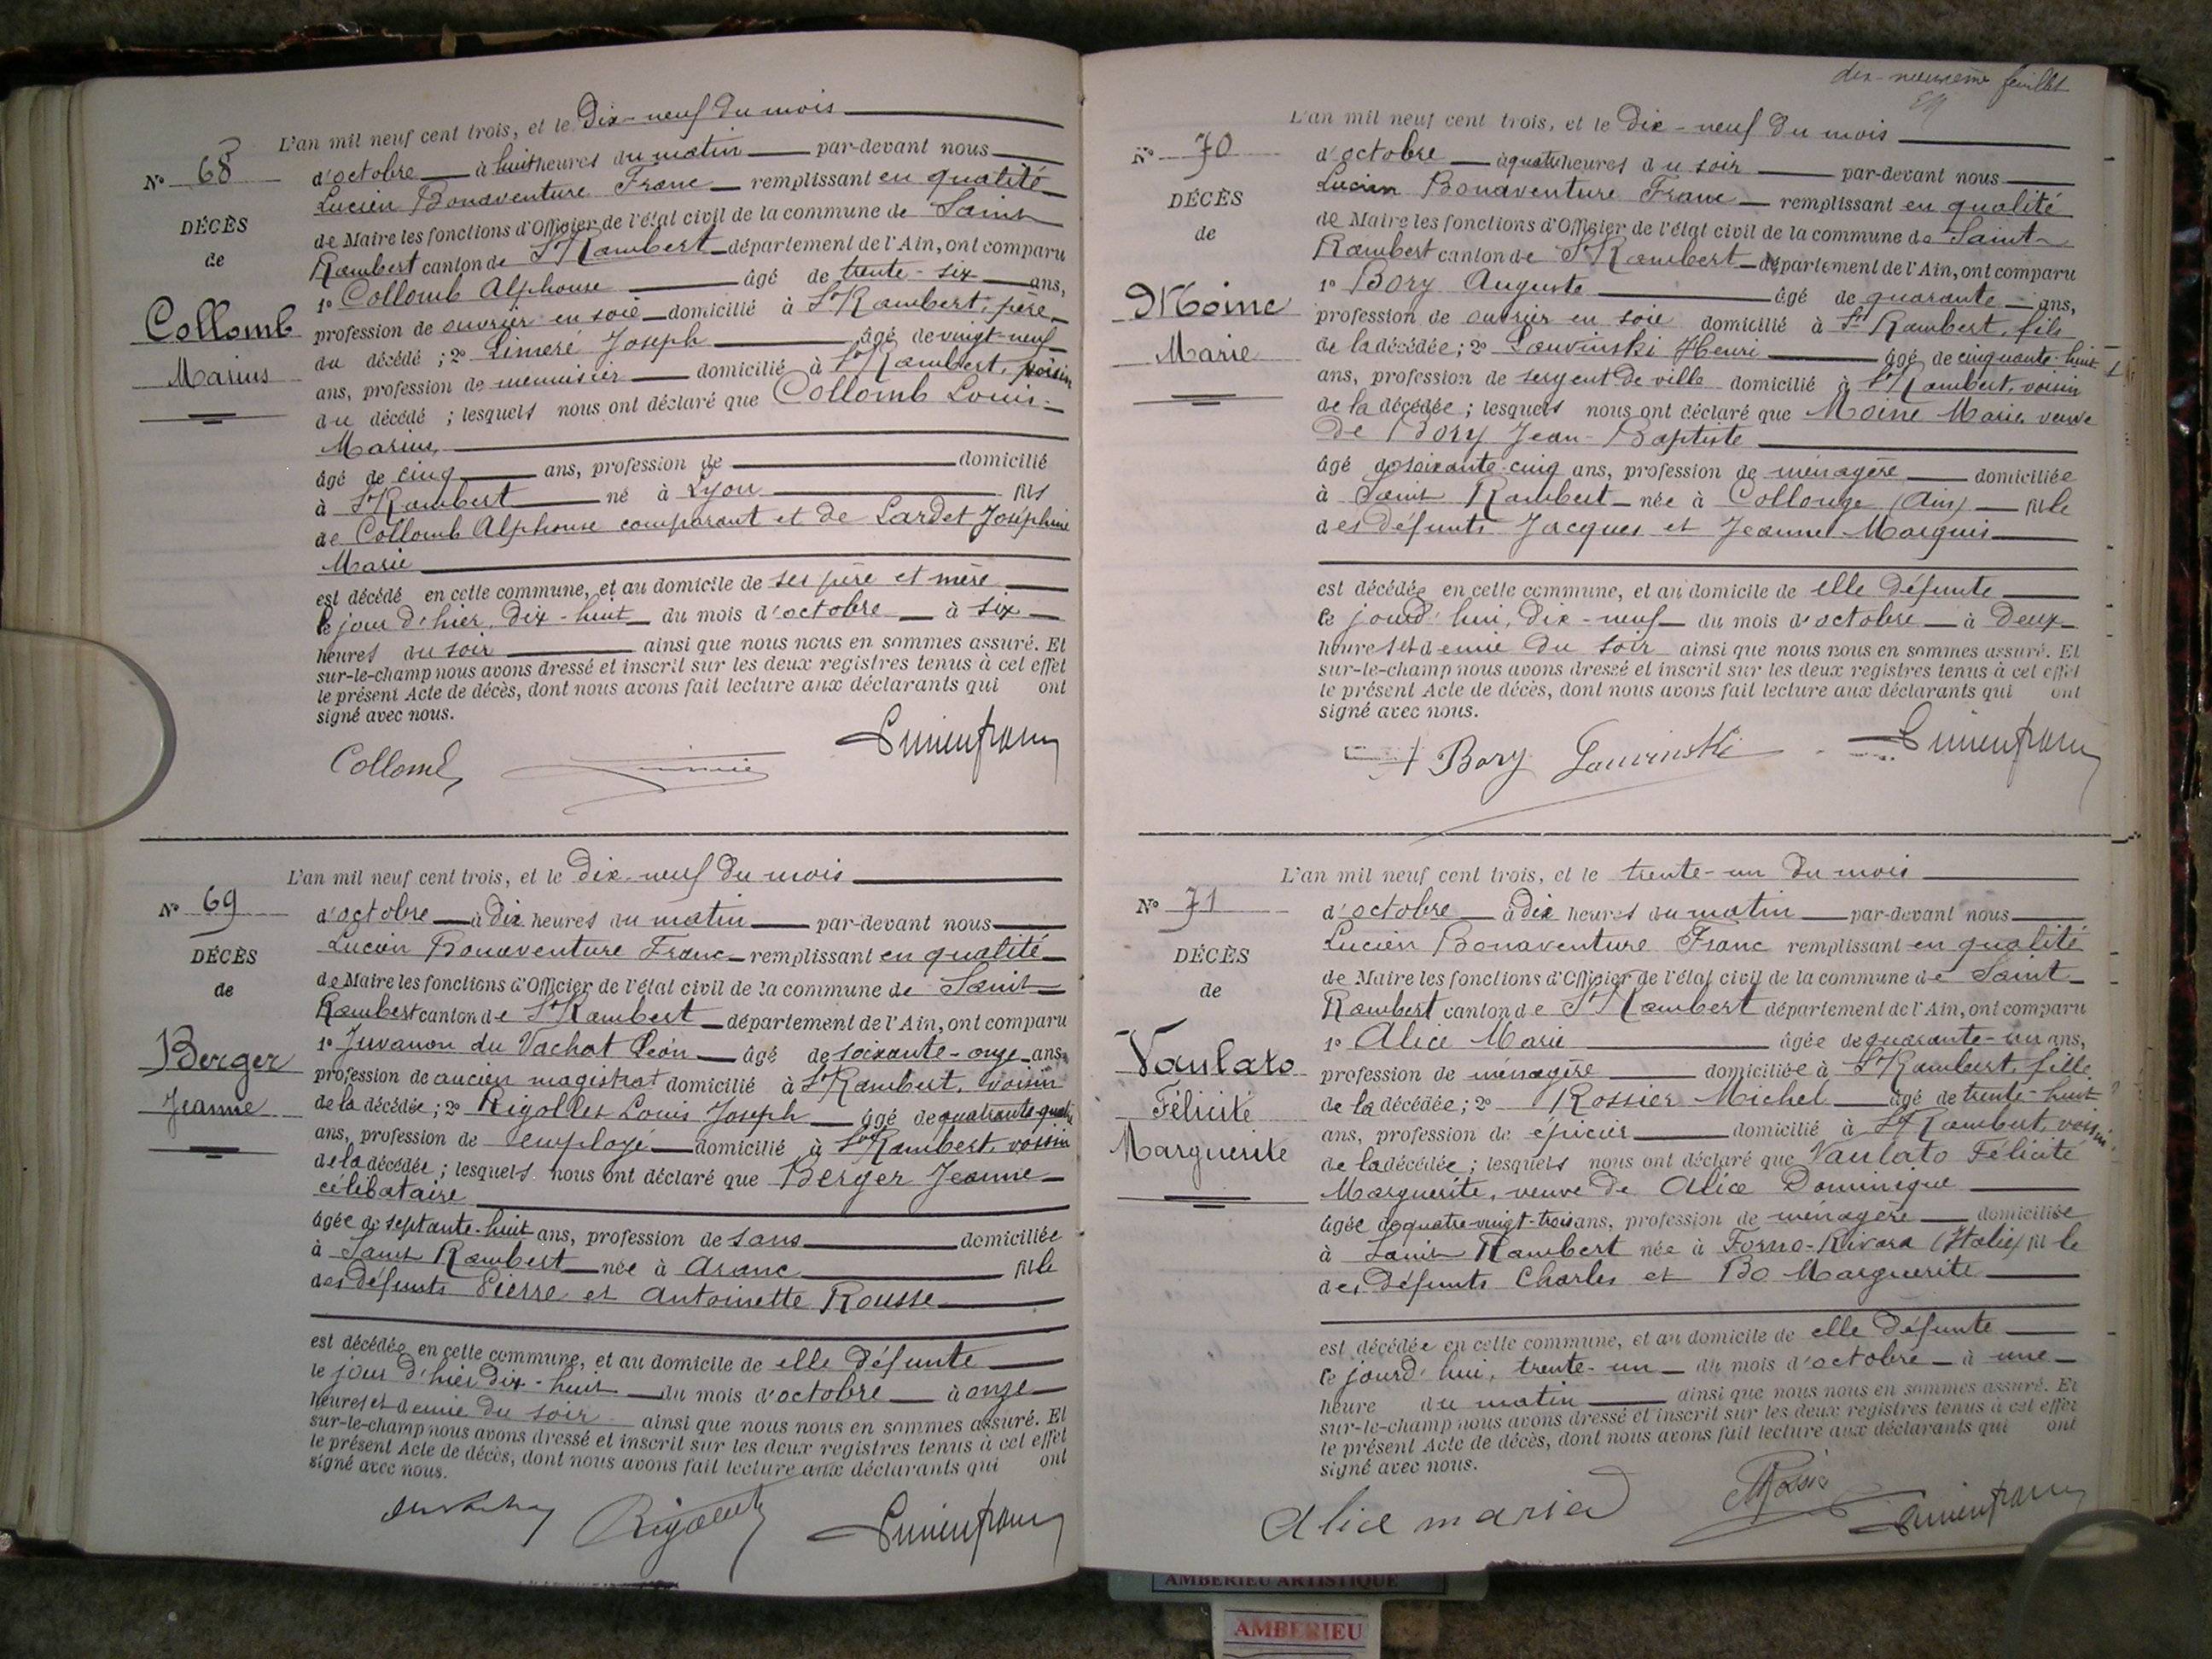 L'an mil neuf cent trois, et le Dix-neuf du mois
N° 68
d'octobre à huit heures du matin par-devant nous
Lucien Bonaventure Franc remplissant en qualité
DÉCÈS
de Maire les fonctions d'Officier de l'état civil de la commune de Saint
de
Rambert canton de St Rambert département de l'Ain, ont comparu
1° Collomb Alphonse âgé de trente-six ans,
Collomb
profession de ouvrier en soie domicilié à St Rambert, père
du décédé ; 2° Joseph âgé de vingt-neuf
Marius
ans, profession de menuisier domicilié à St Rambert, voisin
du décédé ; lesquels nous ont déclaré que Collomb Louis-
Marius
âgé de cinq ans, profession de domicilié
à St Rambert né à Lyon fils
de Collomb Alphonse comparant et de Lardet Joséphine
Marie
est décédé en cette commune, et au domicile de ses père et mère
le jour d'hier, dix-huit du mois d'octobre à six
heures du soir ainsi que nous nous en sommes assuré. Et
sur-le-champ nous avons dressé et inscrit sur les deux registres tenus à cet effet
le présent Acte de décès, dont nous avons fait lecture aux déclarants qui ont
signé avec nous.
Collomb Lucien franc
L'an mil neuf cent trois, et le dix-neuf du mois
N° 69
d'octobre à dix heures du matin par-devant nous
Lucien Bonaventure Franc remplissant en qualité
DÉCÈS
de Maire les fonctions d'Officier de l'état civil de la commune de Saint
de
Rambert canton de St Rambert département de l'Ain, ont comparu
1° Juvanon du Vachat Léon âgé de soixante-onze ans,
Berger
profession de ancien magistrat domicilié à St Rambert, voisin
de la décédée ; 2° Rigollet Louis Joseph âgé de quatrante-quatre
Jeanne
ans, profession de employé domicilié à St Rambert, voisin
de la décédée ; lesquels nous ont déclaré que Berger Jeanne
célibataire
âgée de septante-huit ans, profession de sans domiciliée
à Saint Rambert née à Aranc fille
des défunts Pierre et Antoinette Rousse
est décédée en cette commune, et au domicile de elle défunte
le jour d'hier dix-huit du mois d'octobre à onze
heures et demie du soir ainsi que nous nous en sommes assuré. Et
sur-le-champ nous avons dressé et inscrit sur les deux registres tenus à cet effet
le présent Acte de décès, dont nous avons fait lecture aux déclarants qui ont
signé avec nous.
Rigollet Lucien franc
dix-neuvième feuillet
L'an mil neuf cent trois, et le Dix-neuf du mois
N° 70
d'octobre à quatre heures du soir par-devant nous
Lucien Bonaventure Franc remplissant en qualité
DÉCÈS
de Maire les fonctions d'Officier de l'état civil de la commune de Saint
de
Rambert canton de St Rambert département de l'Ain, ont comparu
1° Bory Auguste âgé de quarante ans,
Moine
profession de ouvrier en soie domicilié à St Rambert, fils
de la décédée ; 2° Lauvinski Henri âgé de cinquante-huit
Marie
ans, profession de sergent de ville domicilié à St Rambert, voisin
de la décédée ; lesquels nous ont déclaré que Moine Marie veuve
de Bory Jean-Baptiste
âgé de soixante-cinq ans, profession de ménagère domiciliée
à Saint Rambert née à Collonge (Ain) fille
des défunts Jacques et Jeanne Marquis
est décédée en cette commune, et au domicile de elle défunte
ce jourd'hui, dix-neuf du mois d'octobre à deux
heures et demie du soir ainsi que nous nous en sommes assuré. Et
sur-le-champ nous avons dressé et inscrit sur les deux registres tenus à cet effet
le présent Acte de décès, dont nous avons fait lecture aux déclarants qui ont
signé avec nous.
Bory Lauvinski Lucien franc
L'an mil neuf cent trois, et le trente-un du mois
N° 71
d'octobre à dix heures du matin par-devant nous
Lucien Bonaventure Franc remplissant en qualité
DÉCÈS
de Maire les fonctions d'Officier de l'état civil de la commune de Saint
de
Rambert canton de St Rambert département de l'Ain, ont comparu
1° Alice Marie âgée de quarante-un ans,
Vaulato
profession de ménagère domiciliée à St Rambert, fille
de la décédée ; 2° Rossier Michel âgé de trente-huit
Félicité
ans, profession de épicier domicilié à St Rambert, voisin
Marguerite
de la décédée ; lesquels nous ont déclaré que Vaulato Félicité
Marguerite, veuve de Alice Dominique
âgée de quatre-vingt-trois ans, profession de ménagère domiciliée
à Saint Rambert née à Forno-Rivara (Italie) fille
des défunts Charles et Bo Marguerite
est décédée en cette commune, et au domicile de elle défunte
ce jourd'hui, trente-un du mois d'octobre à une
heure du matin ainsi que nous nous en sommes assuré. Et
sur-le-champ nous avons dressé et inscrit sur les deux registres tenus à cet effet
le présent Acte de décès, dont nous avons fait lecture aux déclarants qui ont
signé avec nous.
Alice maria Lucien franc
AMBERIEU ARTISTIQUE
AMBERIEU